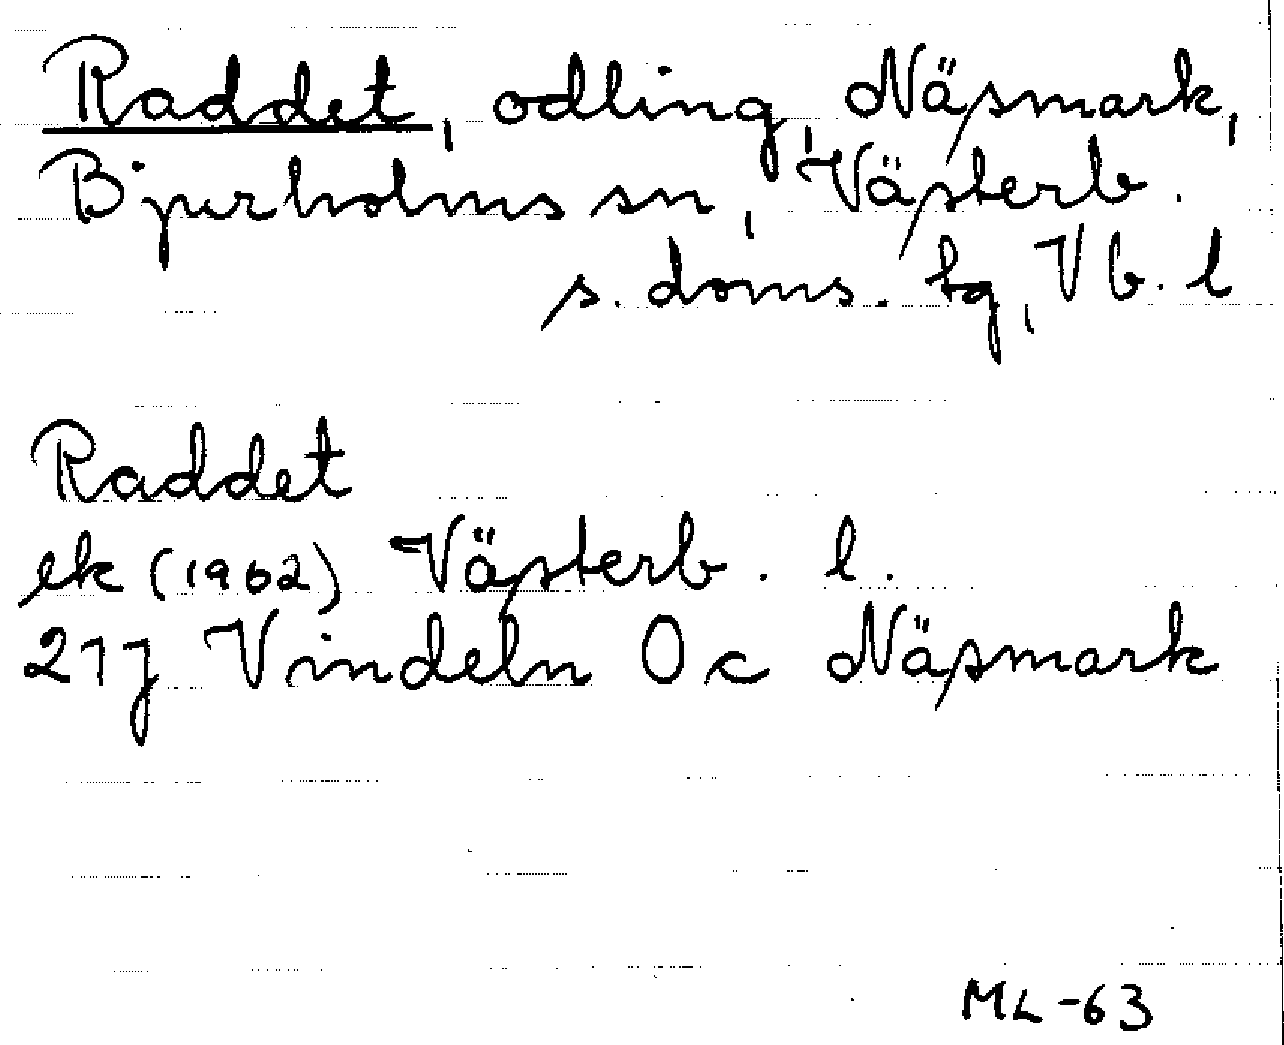 Raddet, odling, Näsmark,
Bjurholms sn, Västerb.
s. doms. tg, Vb. l
Raddet
ek (1962) Västerb. l.
21J Vindeln 0c Näsmark
ML-63